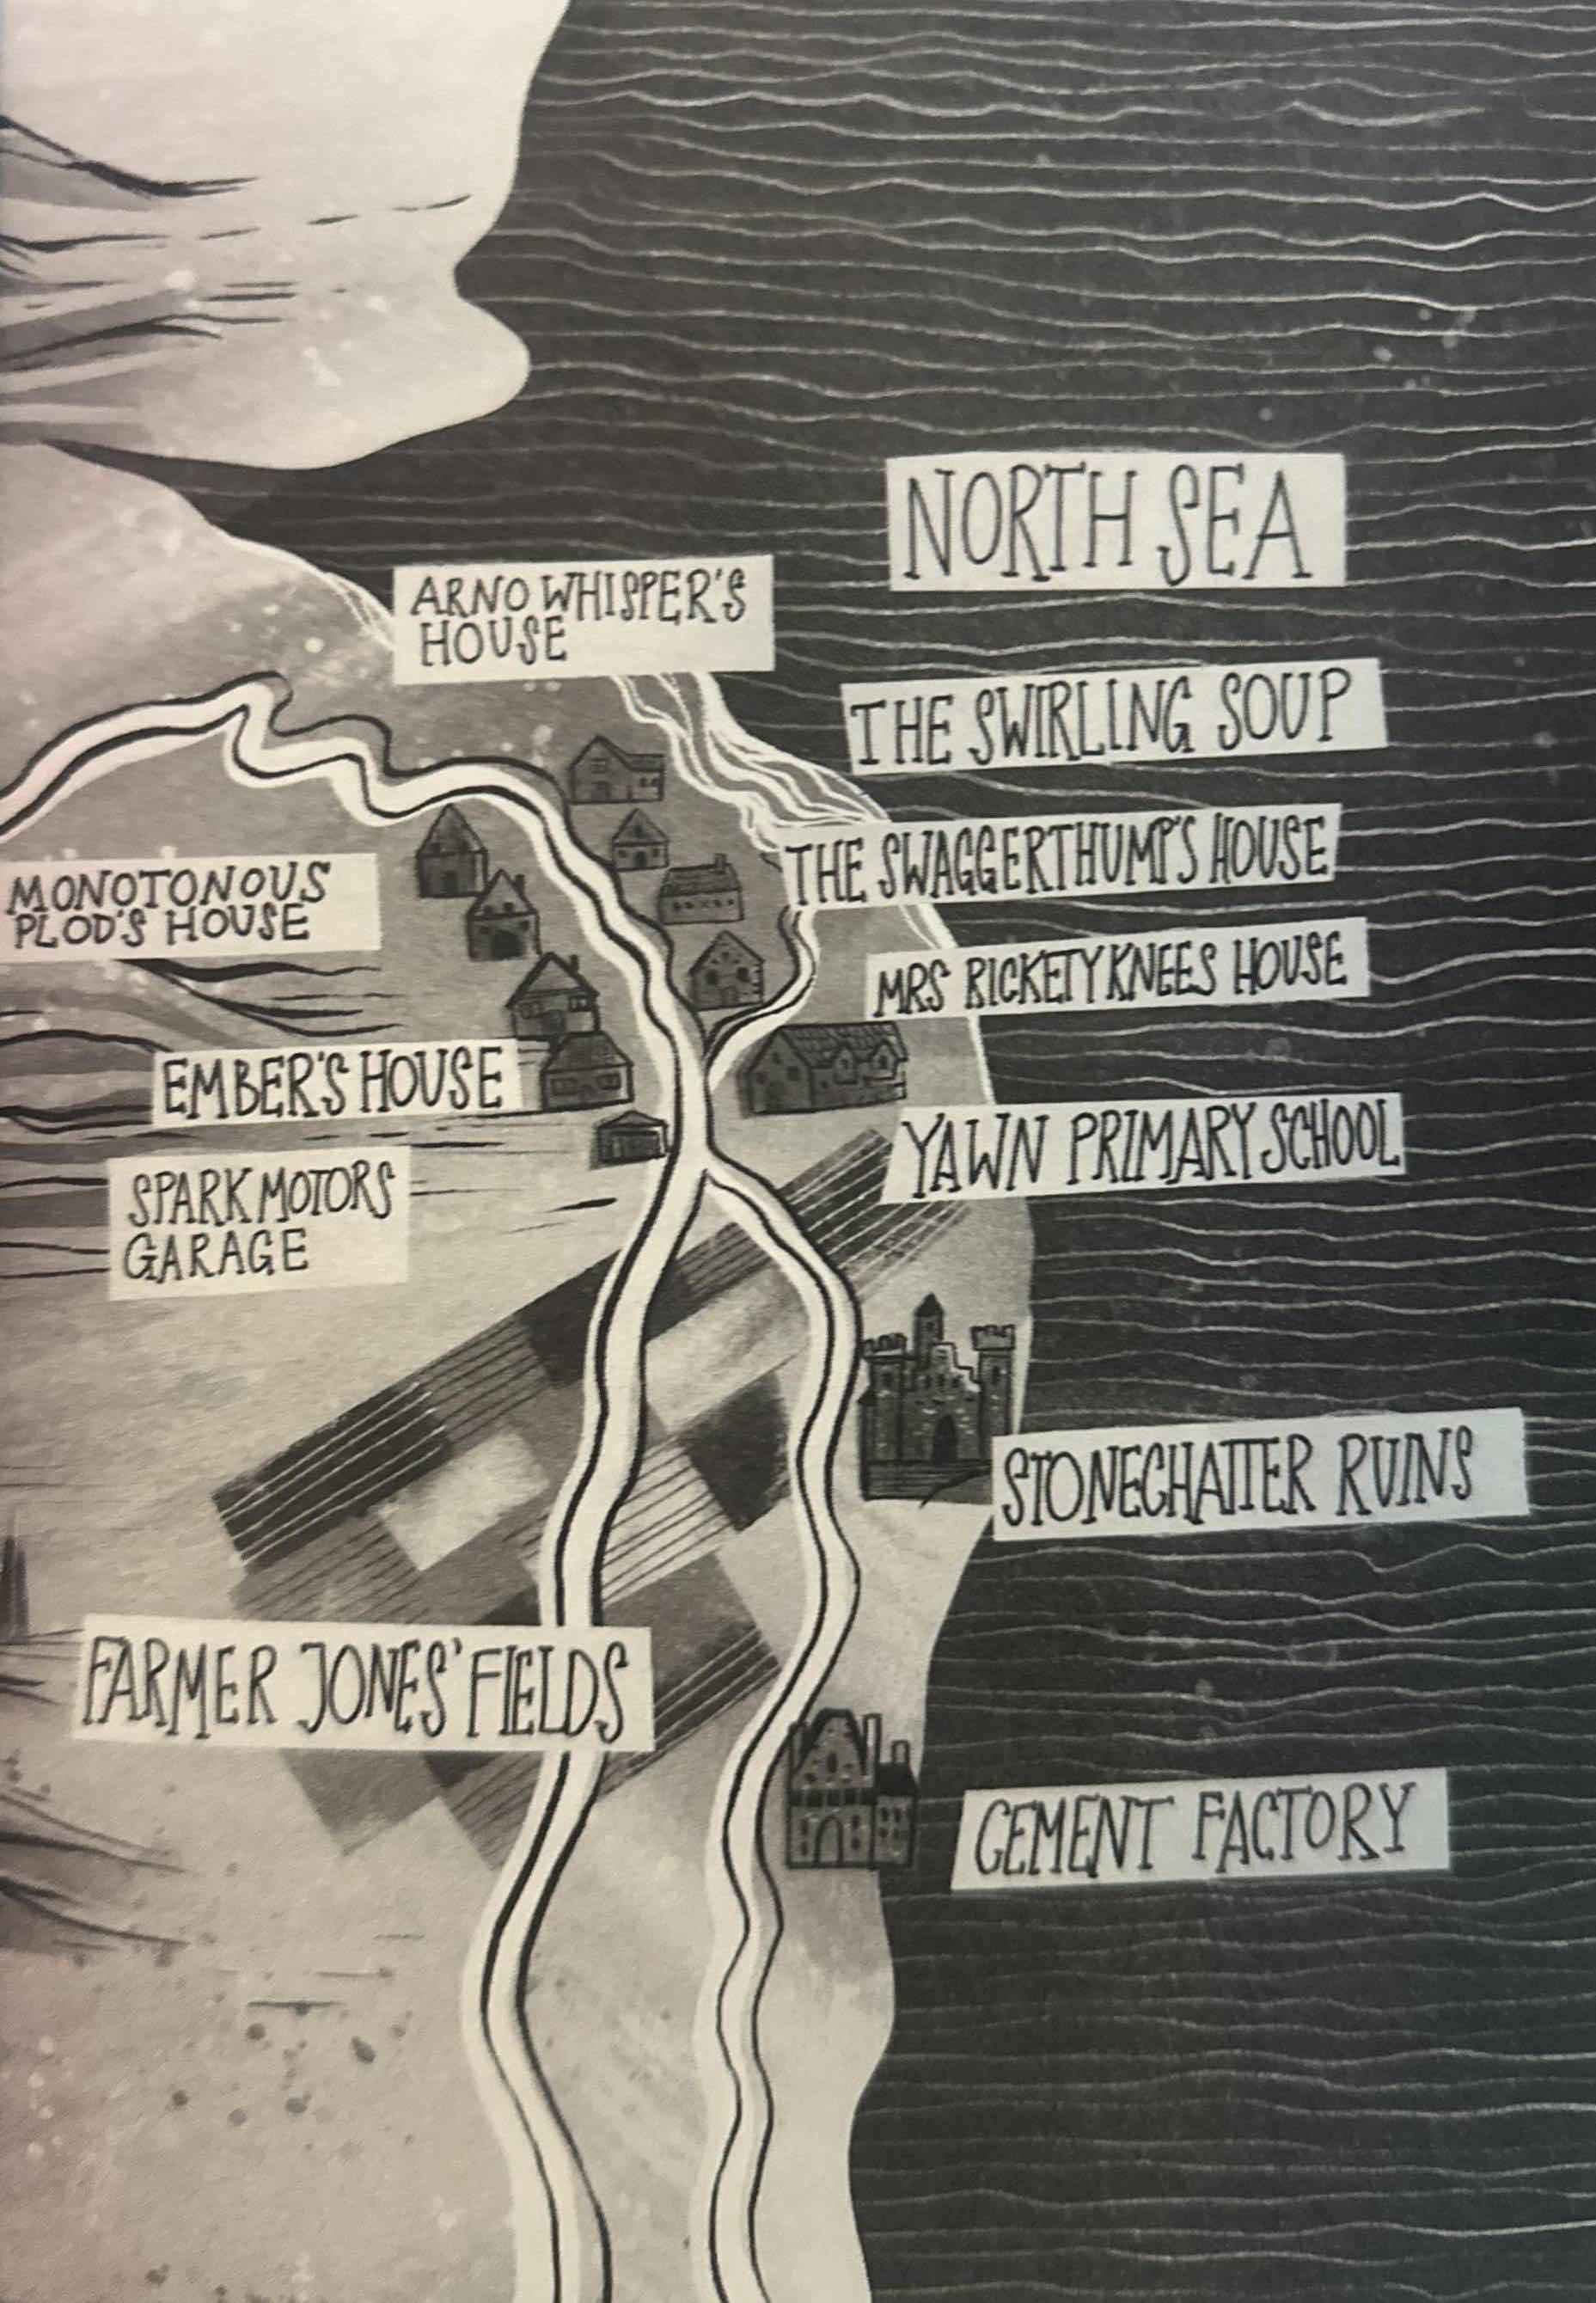 NORTH SEA
ARNO WHISPER'S
HOUSE
THE SWIRLING SOUP
THE SWAGGERTHUMP'S HOUSE
MONOTONOUS
PLOD'S HOUSE
MRS RICKETYKNEES HOUSE
EMBER'S HOUSE
YAWN PRIMARY SCHOOL
SPARK MOTORS
GARAGE
STONECHATTER RUINS
FARMER JONES' FIELDS
CEMENT FACTORY